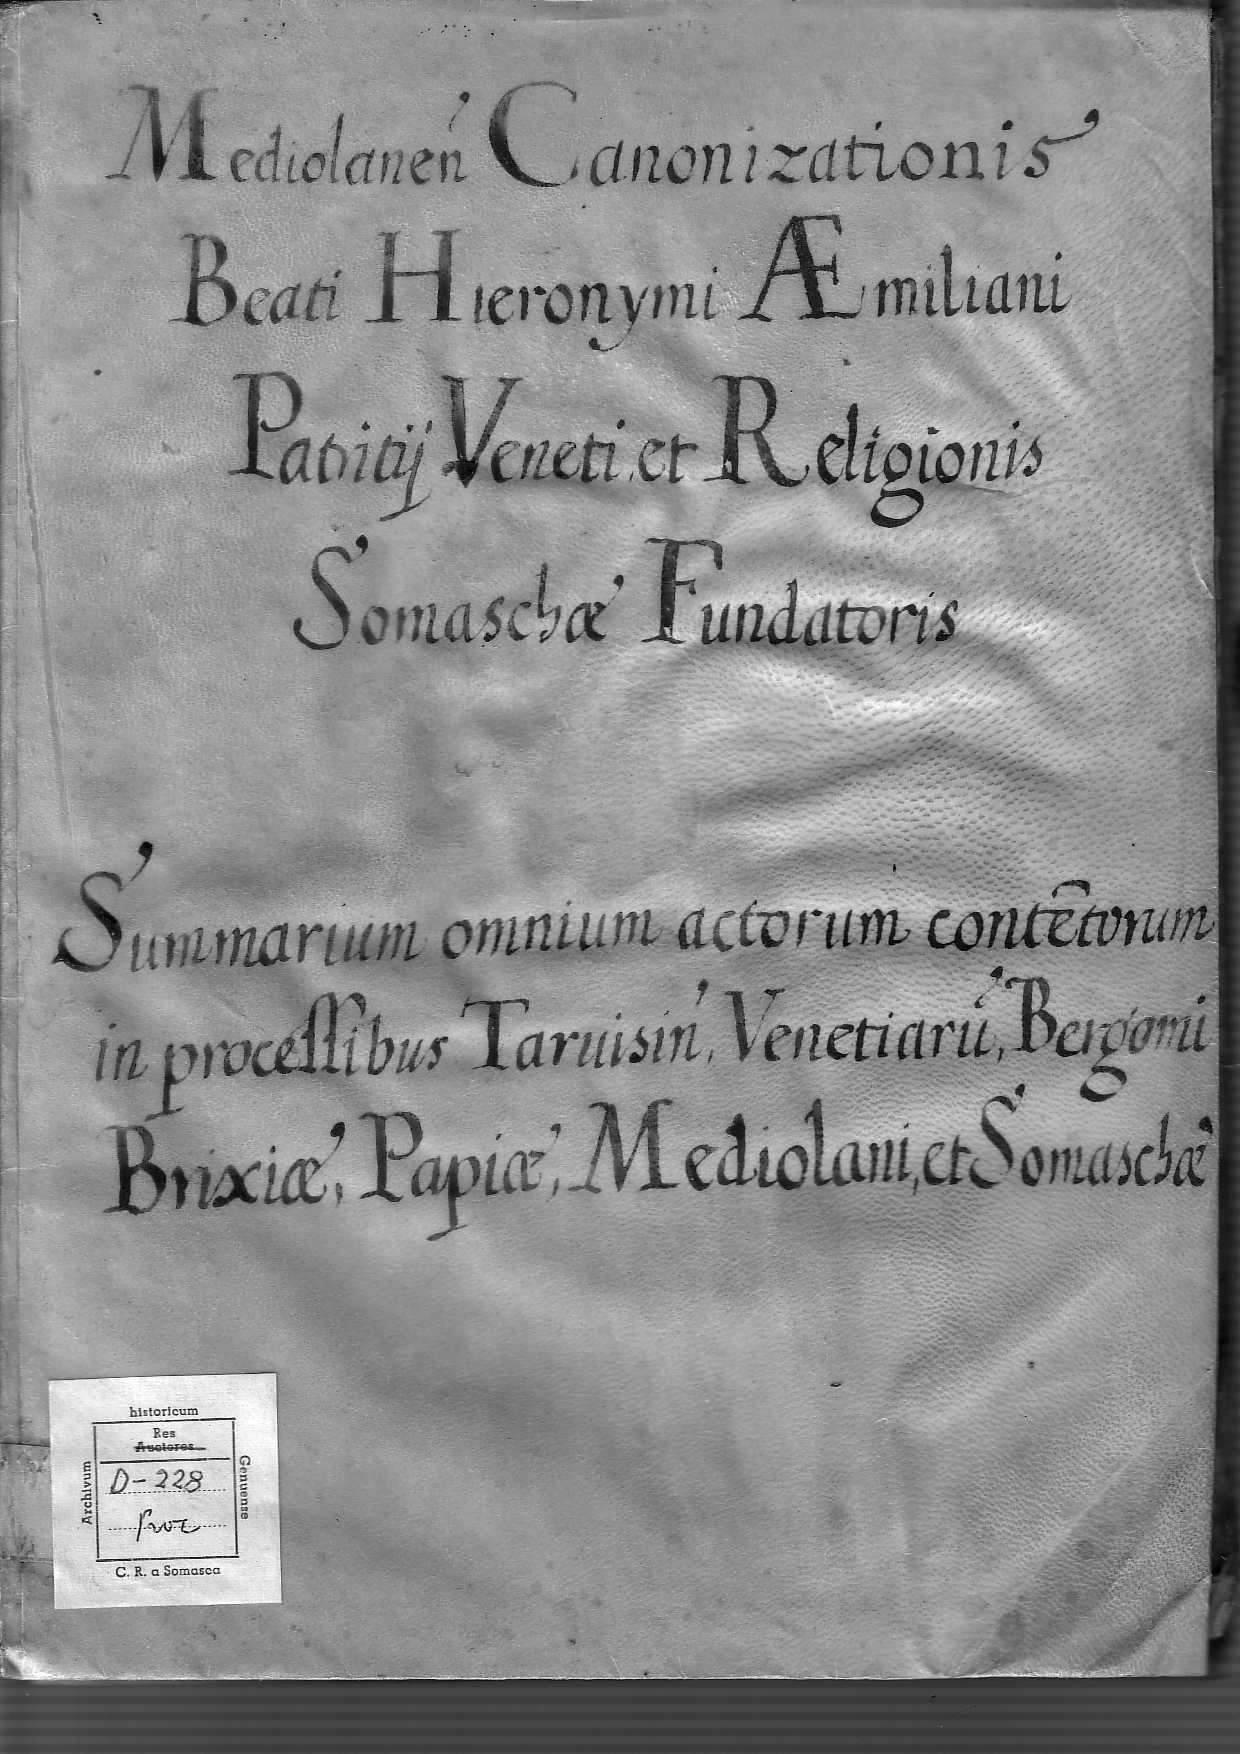 Mediolanen̄ Canonizationis
Beati Hieronymi Æmiliani
Patritij Veneti, et Religionis
Somaschæ Fundatoris
Summarium omnium actorum contētorum
in proceſſibus Taruisin̄, Venetiarū, Bergomi
Brixiæ, Papiæ, Mediolani, et Somaschæ
historicum
Res
Auctores
Archivum
Genuense
D-228
C. R. a Somasca